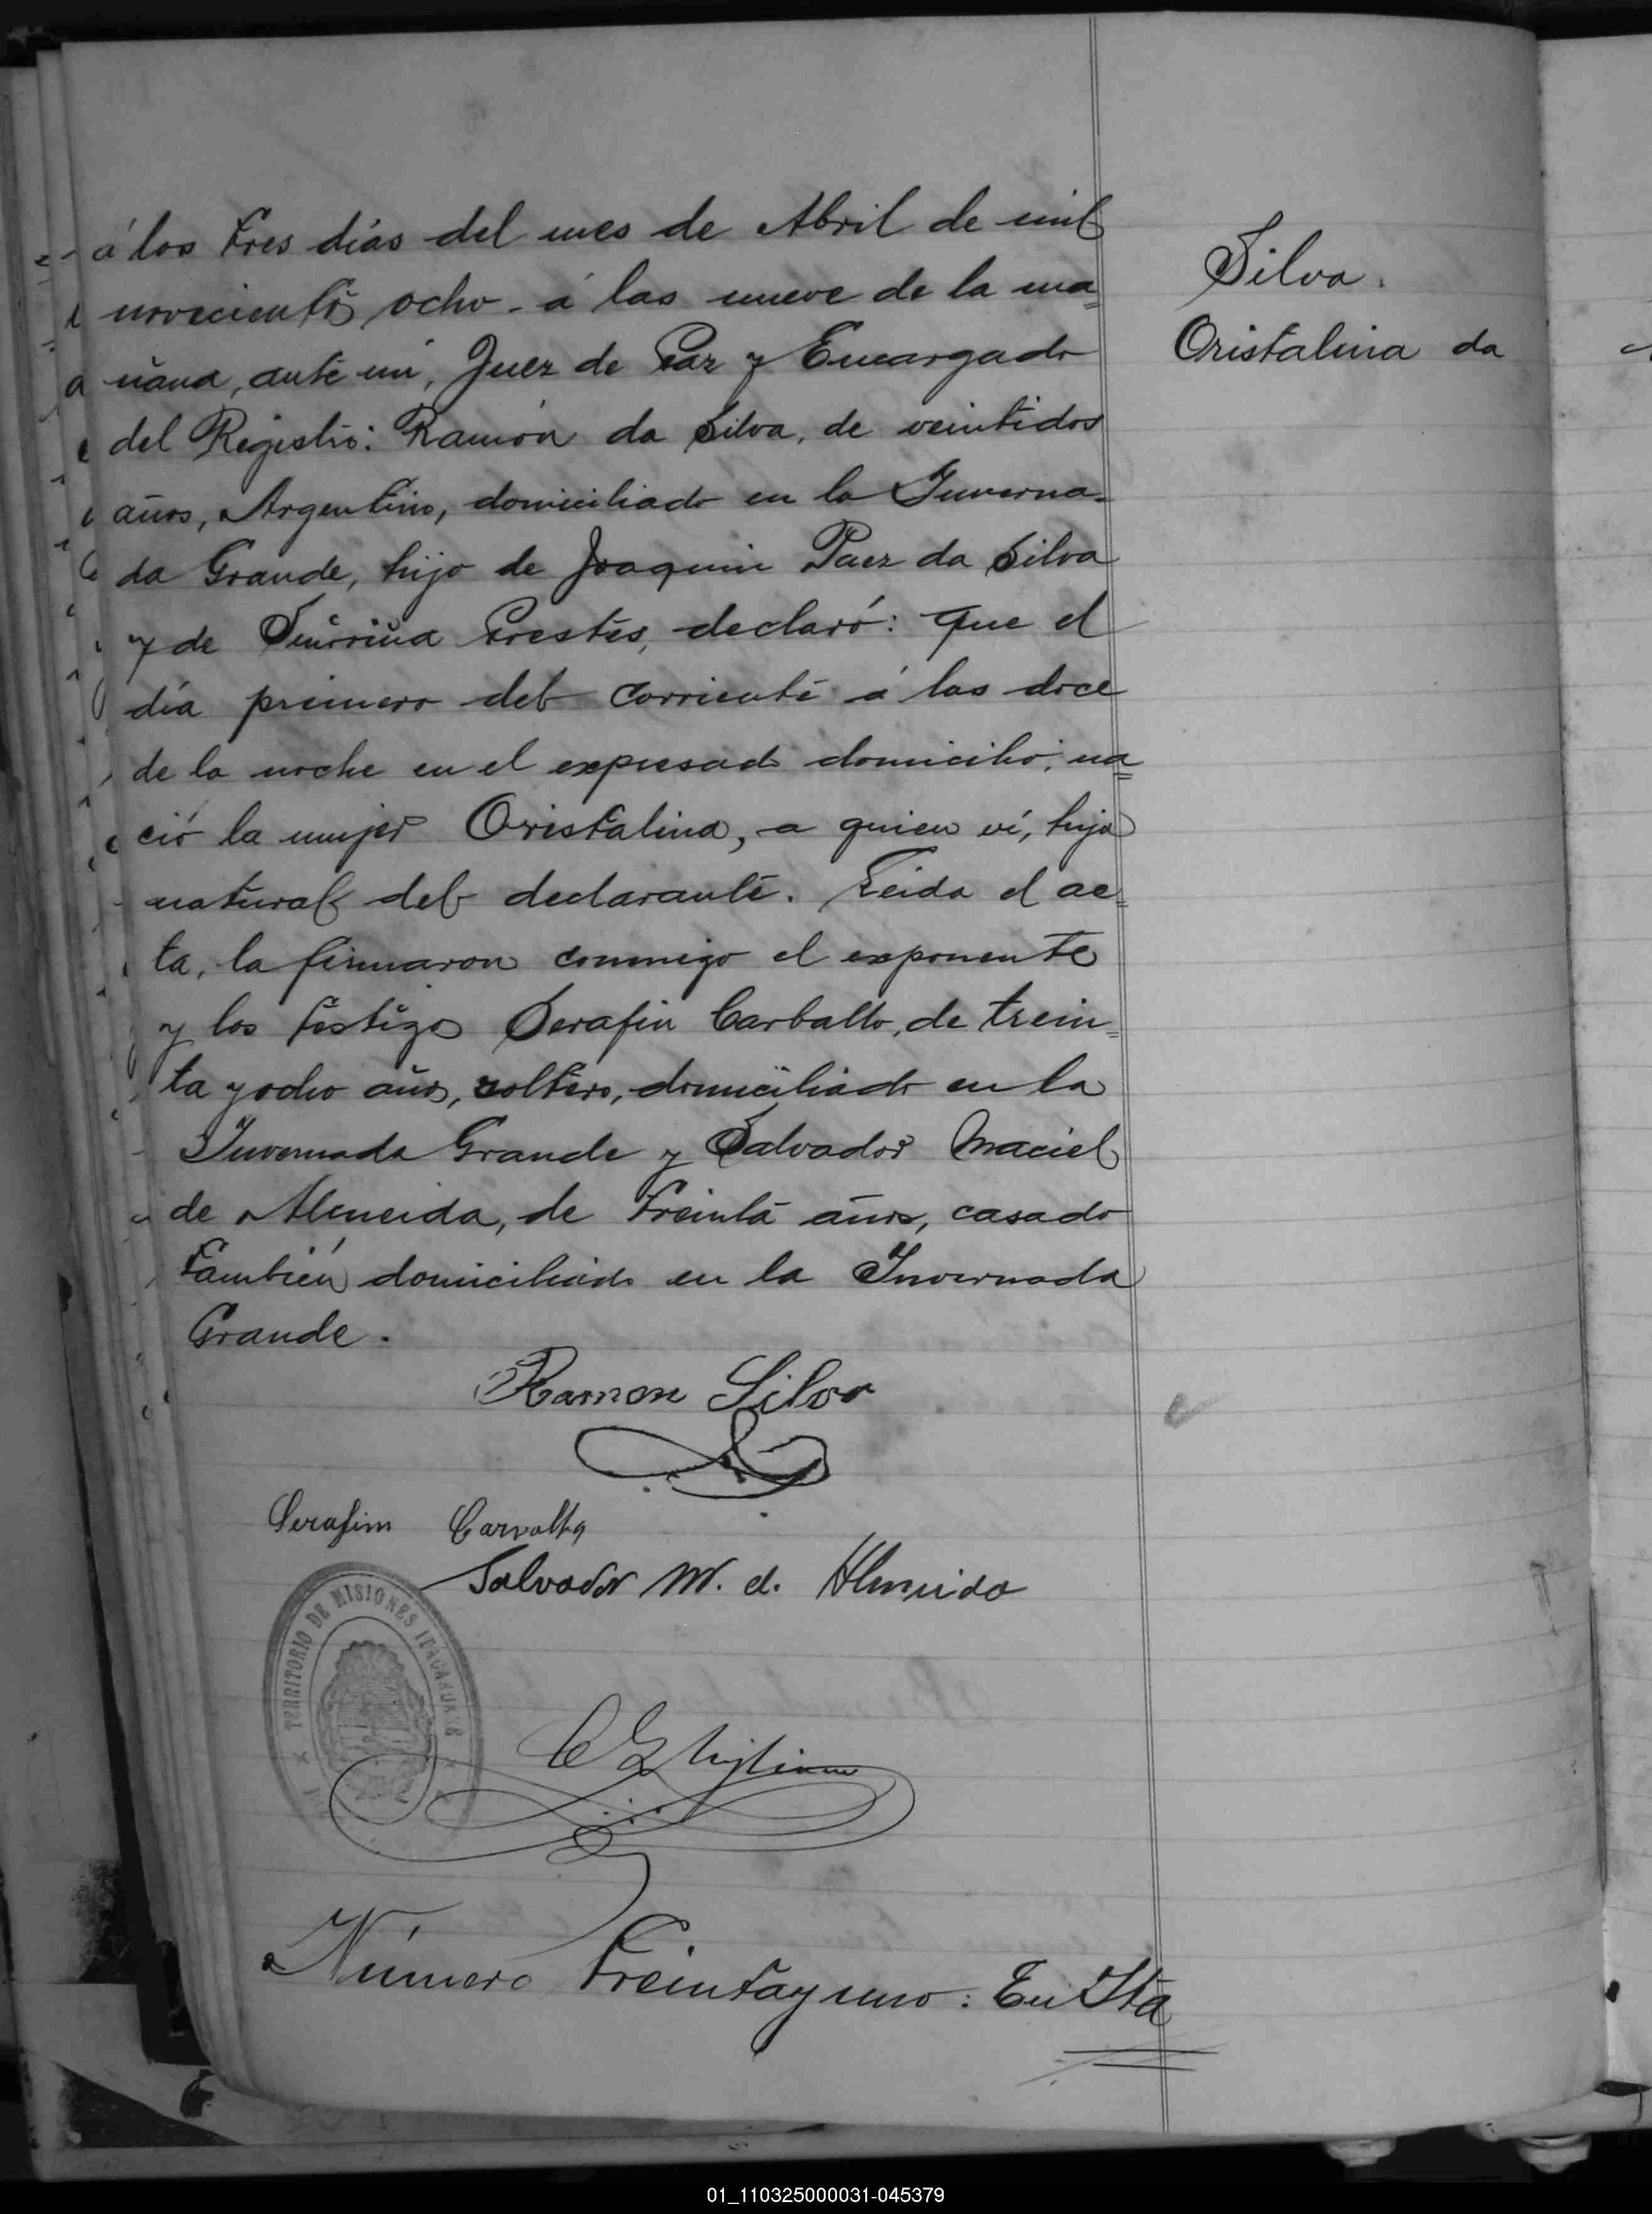 á los tres días del mes de Abril de mil
novecientos ocho - á las nueve de la ma=
ñana, ante mí, Juez de Paz y Encargado
del Registro: Ramón da Silva, de veintidos
años, Argentino, domiciliado en la Inverna-
da Grande, hijo de Joaquin Paez da Silva
y de Prestes, declaró: que el
día primero del corriente á las doce
de la noche en el expresado domicilio, na=
ció la mujer Oristalina, a quien ví, hija
natural del declarante. Leida el ac=
ta, la firmaron conmigo el exponente
y los testigos Serafin Carballo, de trein=
ta y ocho años, soltero, domiciliado en la
Invernada Grande y Salvador Maciel
de Almeida, de treinta años, casado
también domiciliado en la Invernada
Grande.
Silva.
Oristalina da
Ramon Silva
Serafim Carvalho
Salvador M. d. Almeida
TERRITORIO DE MISIONES ITACARUARE
Número treinta y uno: En Ita
01_110325000031-045379